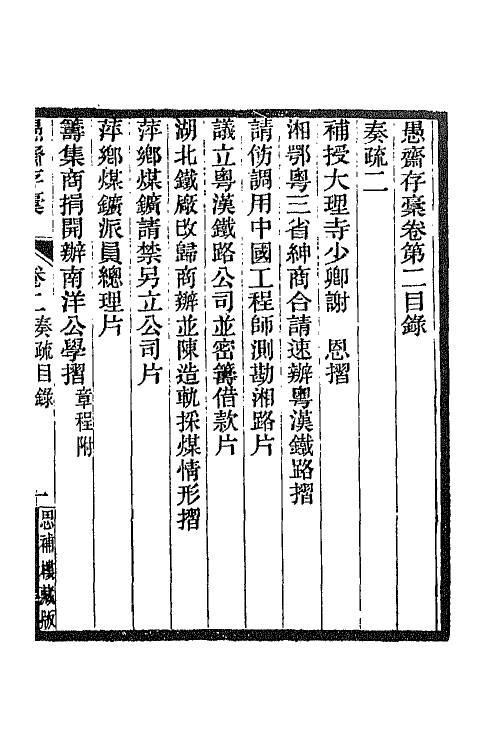 愚齋存稾卷第二目錄
奏疏二
補授大理寺少卿謝　恩摺
湘鄂粤三省紳商合請速辦粤漢鐵路摺
請飭調用中國工程師測勘湘路片
議立粤漢鐵路公司並密籌借款片
湖北鐵廠改歸商辦並陳造軌採煤情形摺
萍鄉煤鑛請禁另立公司片
萍鄉煤鑛派員總理片
籌集商捐開辦南洋公學摺 章程附
愚齋存稾 卷二 奏疏目錄 一 思補樓藏版